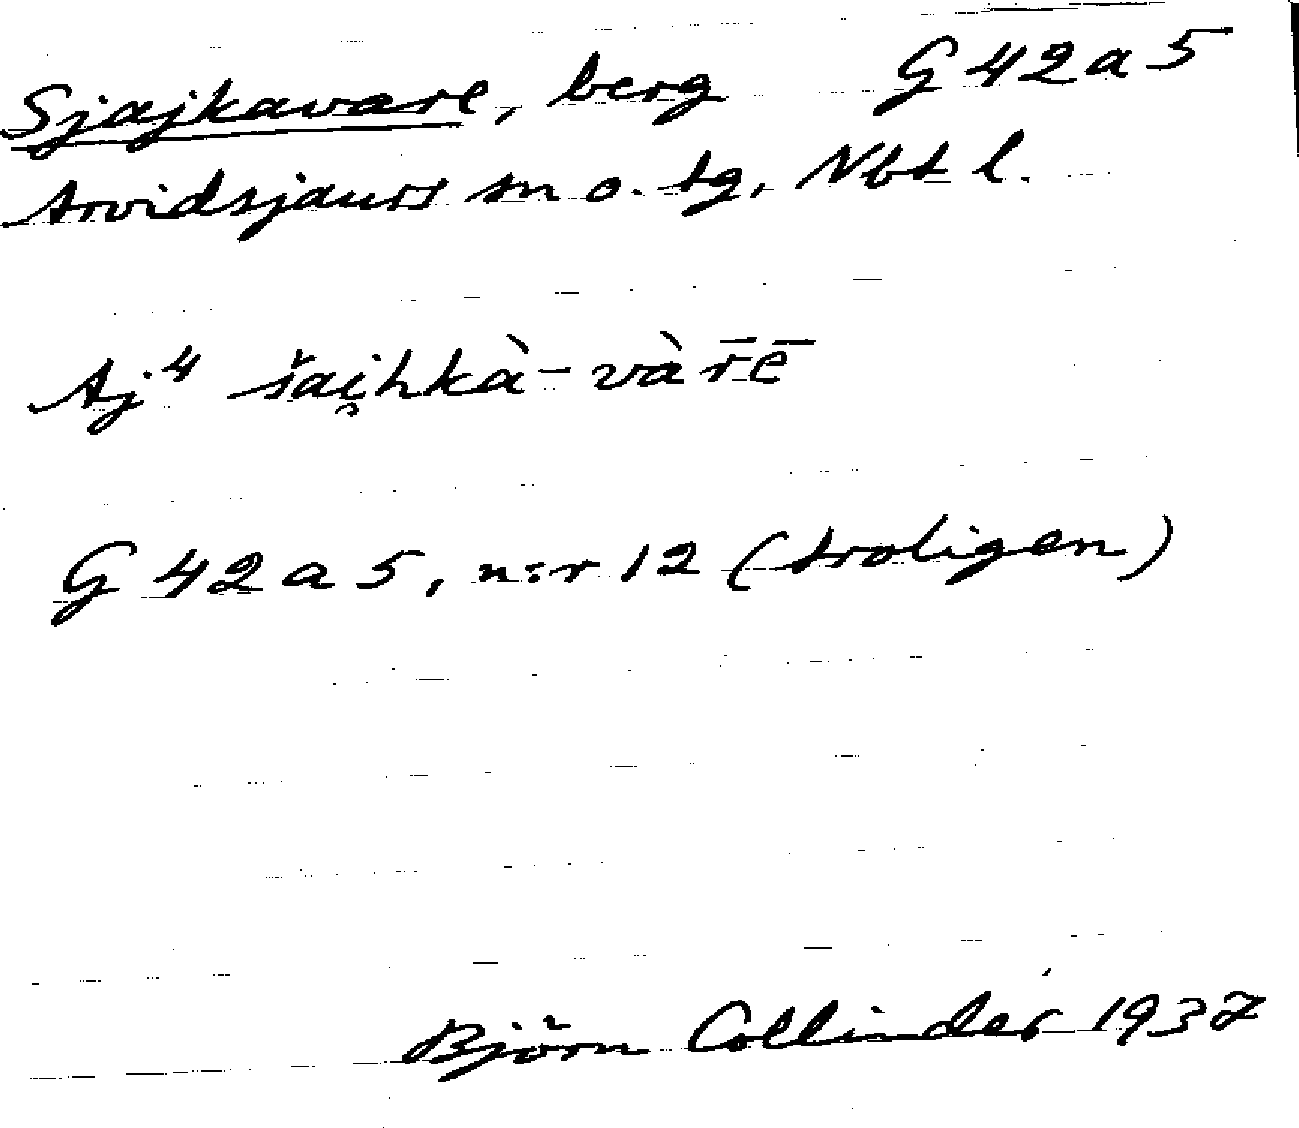 Sjajkavare, berg G 42 a 5
Arvidsjaurs sn o. tg, Nbt l.
Aj⁴ šai̯hkà-vàr̄ē
G 42 a 5, n:r 12 (troligen)
Björn Collinder 1937